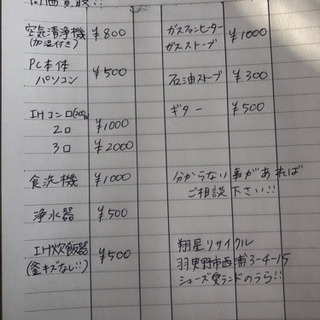 高価買取!!
空気清浄機 ¥800
(加湿付き)
PC本体
パソコン ¥500
IHコンロ(200V)
2口 ¥1000
3口 ¥2000
食洗機 ¥1000
浄水器 ¥500
IH炊飯器 ¥500
(釜キズなし!!)
ガスファンヒーター
ガスストーブ ¥1000
石油ストーブ ¥300
ギター ¥500
分からない事があれば
ご相談下さい!!
翔星リサイクル
羽曳野市西浦3-4-15
シューズ愛ランドのうら!!